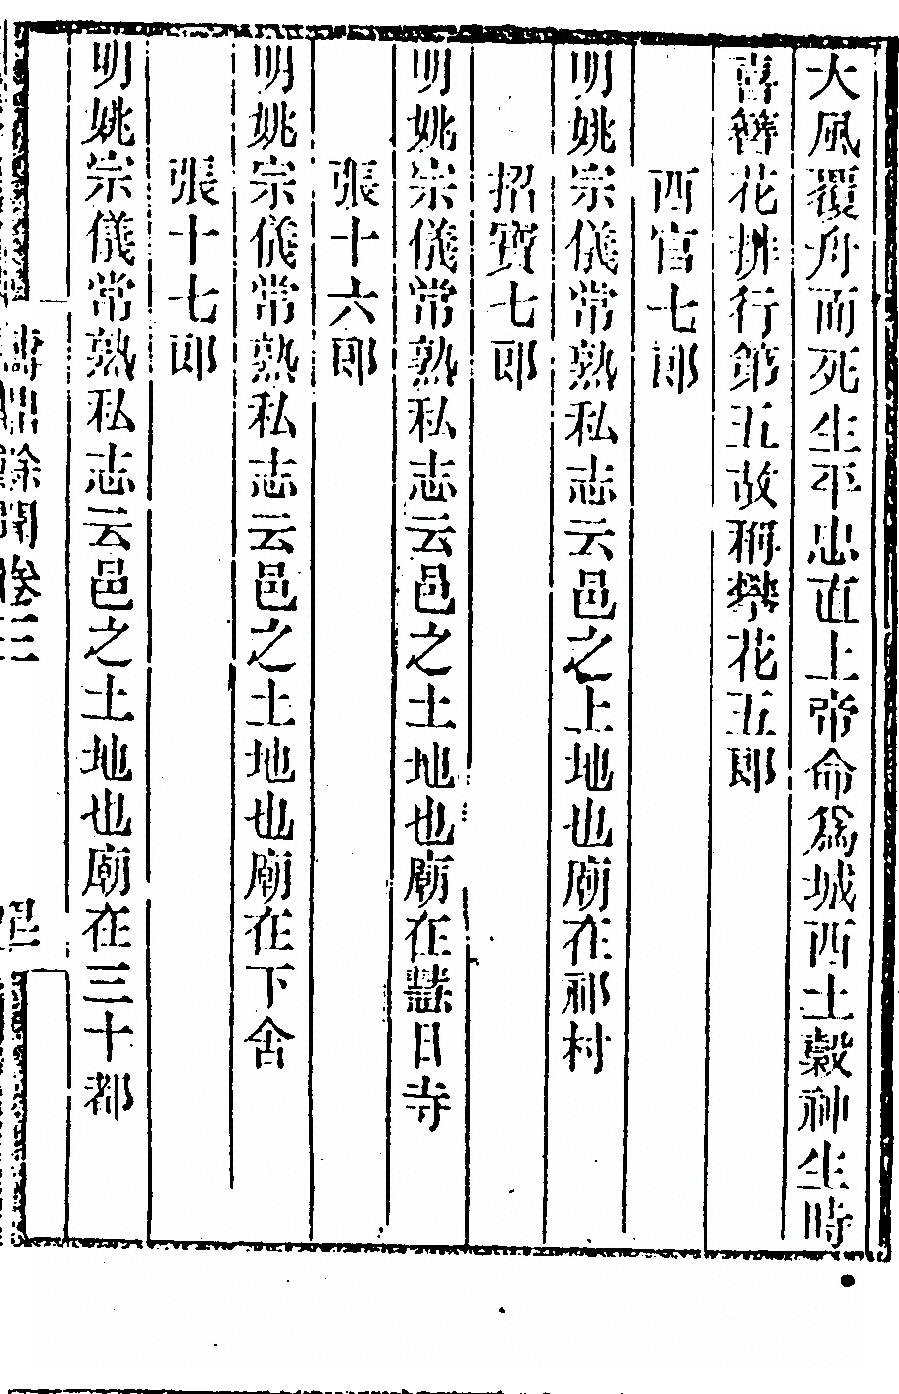 大風覆舟而死生平忠直上帝命爲城西土穀神生時
喜簪花排行第五故稱攀花五郎
西官七郎
明姚宗儀常熟私志云邑之土地也廟在祁村
招寶七郎
明姚宗儀常熟私志云邑之土地也廟在慧日寺
張十六郎
明姚宗儀常熟私志云邑之土地也廟在下舍
張十七郎
明姚宗儀常熟私志云邑之土地也廟在三十都
餘聞卷三